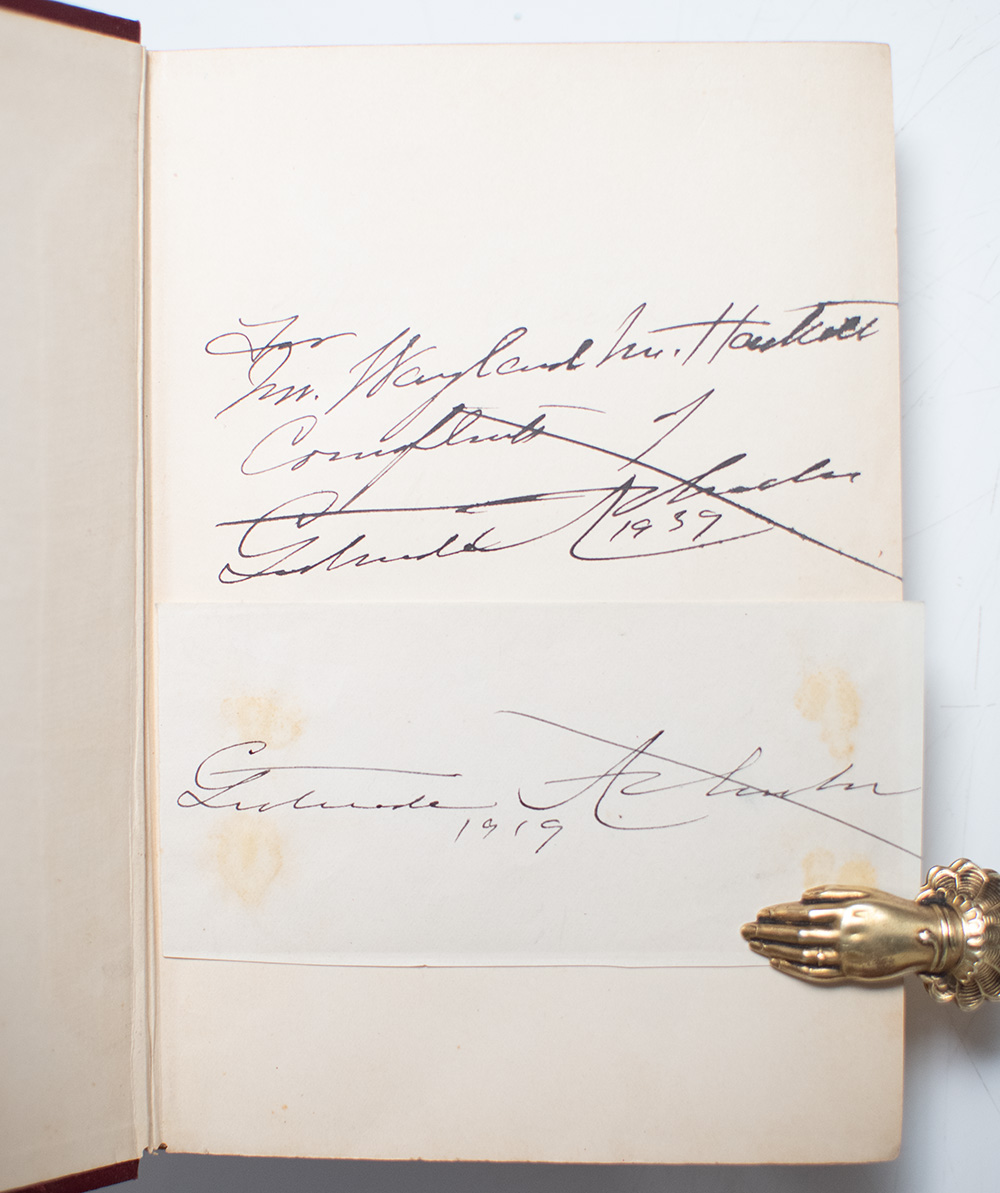 For
Mr. Wayland M. Haskell
Compliments of
Gertrude Atherton
1939
Gertrude Atherton
1919